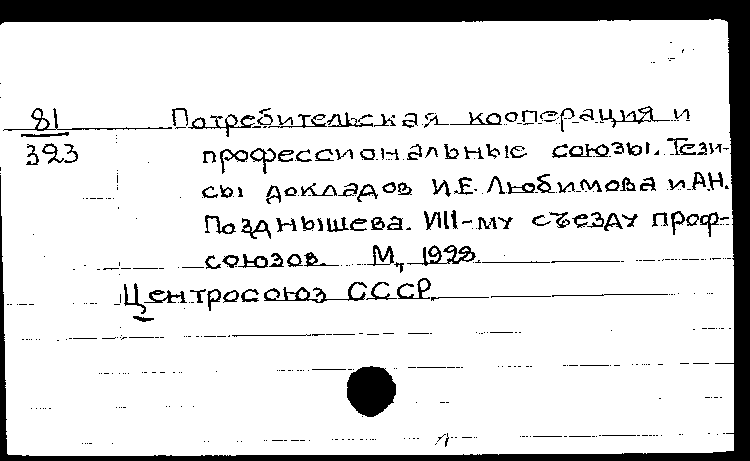 81 Потребительская кооперация и
323 профессиональные союзы. Тези-
сы докладов И.Е. Любимова и А.Н.
Позднышева. VIII-му съезду проф-
союзов. М., 1928.
Центросоюз СССР.